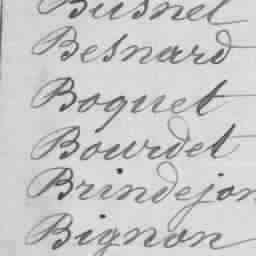 Busnel
Besnard
Boquet
Bourdet
Brindejon
Bignon